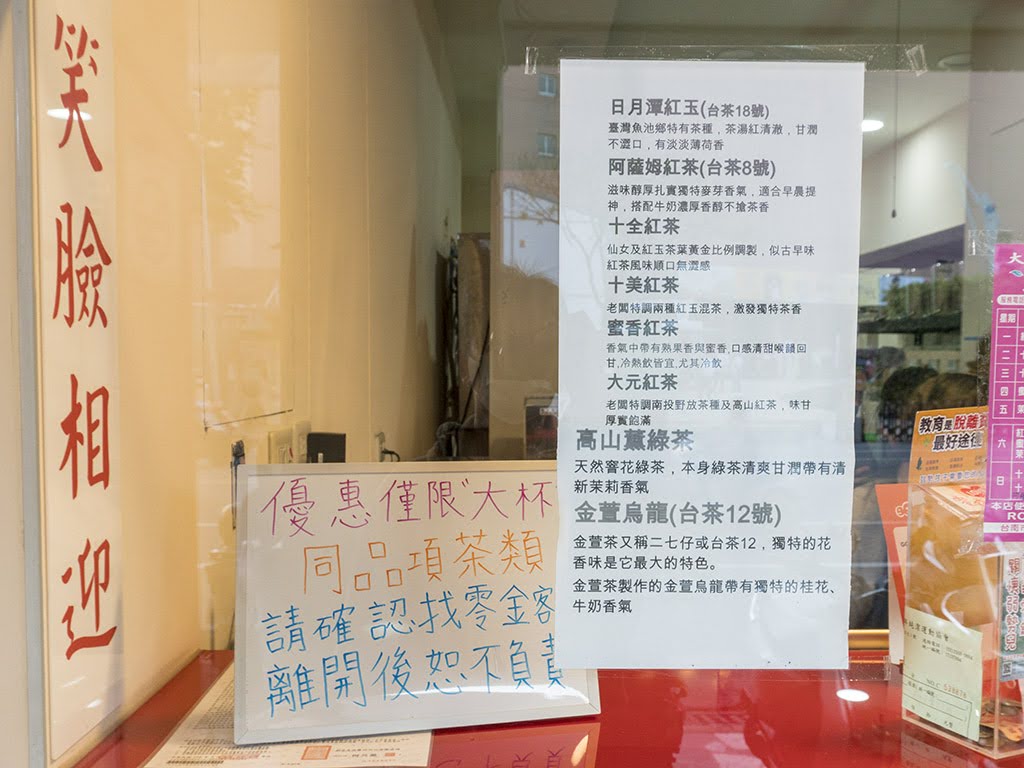 笑臉相迎
日月潭紅玉(台茶18號)
臺灣魚池鄉特有茶種，茶湯紅清澈，甘潤
不澀口，有淡淡薄荷香
阿薩姆紅茶(台茶8號)
滋味醇厚扎實獨特麥芽香氣，適合早晨提
神，搭配牛奶濃厚香醇不搶茶香
十全紅茶
仙女及紅玉茶葉黃金比例調製，似古早味
紅茶風味順口無澀感
十美紅茶
老闆特調兩種紅玉混茶，激發獨特茶香
蜜香紅茶
香氣中帶有熟果香與蜜香,口感清甜喉韻回
甘,冷熱飲皆宜,尤其冷飲
大元紅茶
老闆特調南投野放茶種及高山紅茶，味甘
厚實飽滿
高山薰綠茶
天然窨花綠茶，本身綠茶清爽甘潤帶有清
新茉莉香氣
金萱烏龍(台茶12號)
金萱茶又稱二七仔或台茶12，獨特的花
香味是它最大的特色。
金萱茶製作的金萱烏龍帶有獨特的桂花、
牛奶香氣
優惠僅限"大杯
同品項茶類
請確認找零金客
離開後恕不負責
教育是脫離
最好途徑
星期
一
二
三
四
五
六
日